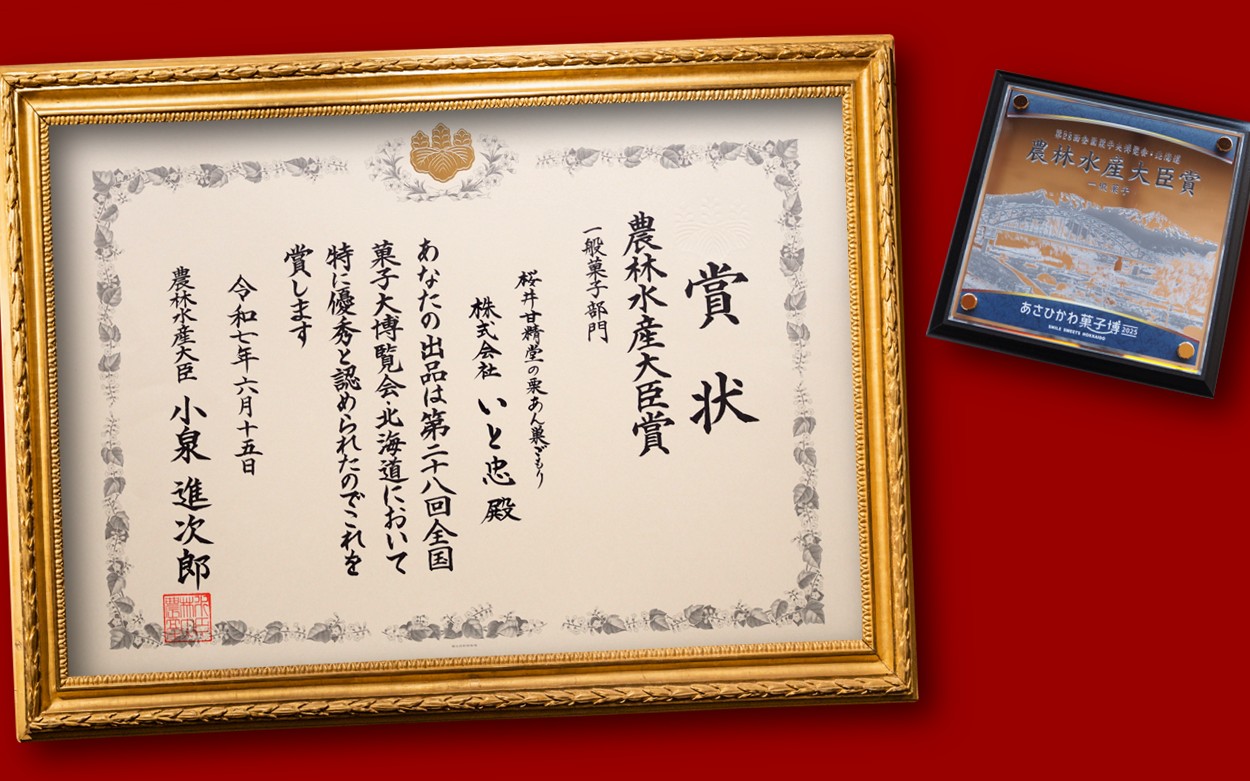 賞状
農林水産大臣賞
一般菓子部門
桜井甘精堂の栗あん巣ごもり
株式会社 いと忠 殿
あなたの出品は第二十八回全国
菓子大博覧会・北海道において
特に優秀と認められたのでこれを
賞します
令和七年六月十五日
農林水産大臣 小泉 進次郎
第28回全国菓子大博覧会・北海道
農林水産大臣賞
一般菓子
あさひかわ菓子博2025
SMILE SWEETS HOKKAIDO